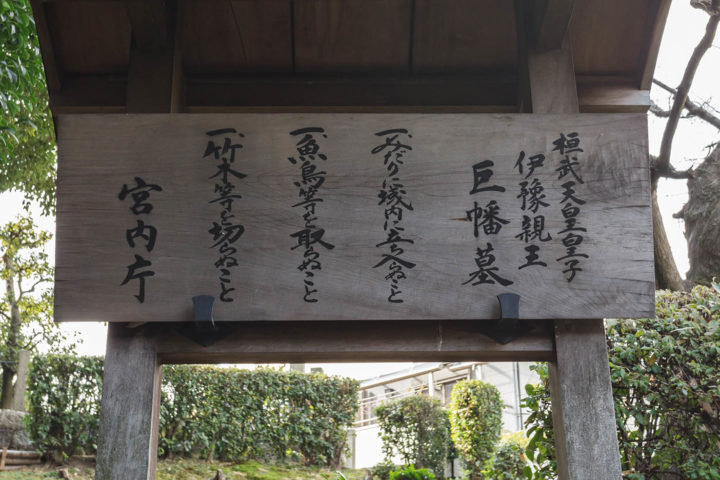 桓武天皇皇子
伊豫親王
巨幡墓
一、みだりに域内に立ち入らぬこと
一、魚鳥等を取らぬこと
一、竹木等を切らぬこと
宮内庁